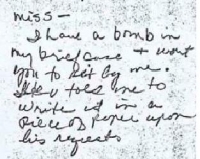 miss -
I have a bomb in
my briefcase + want
you to sit by me.
told me to
write it in a
piece of paper upon
his requests